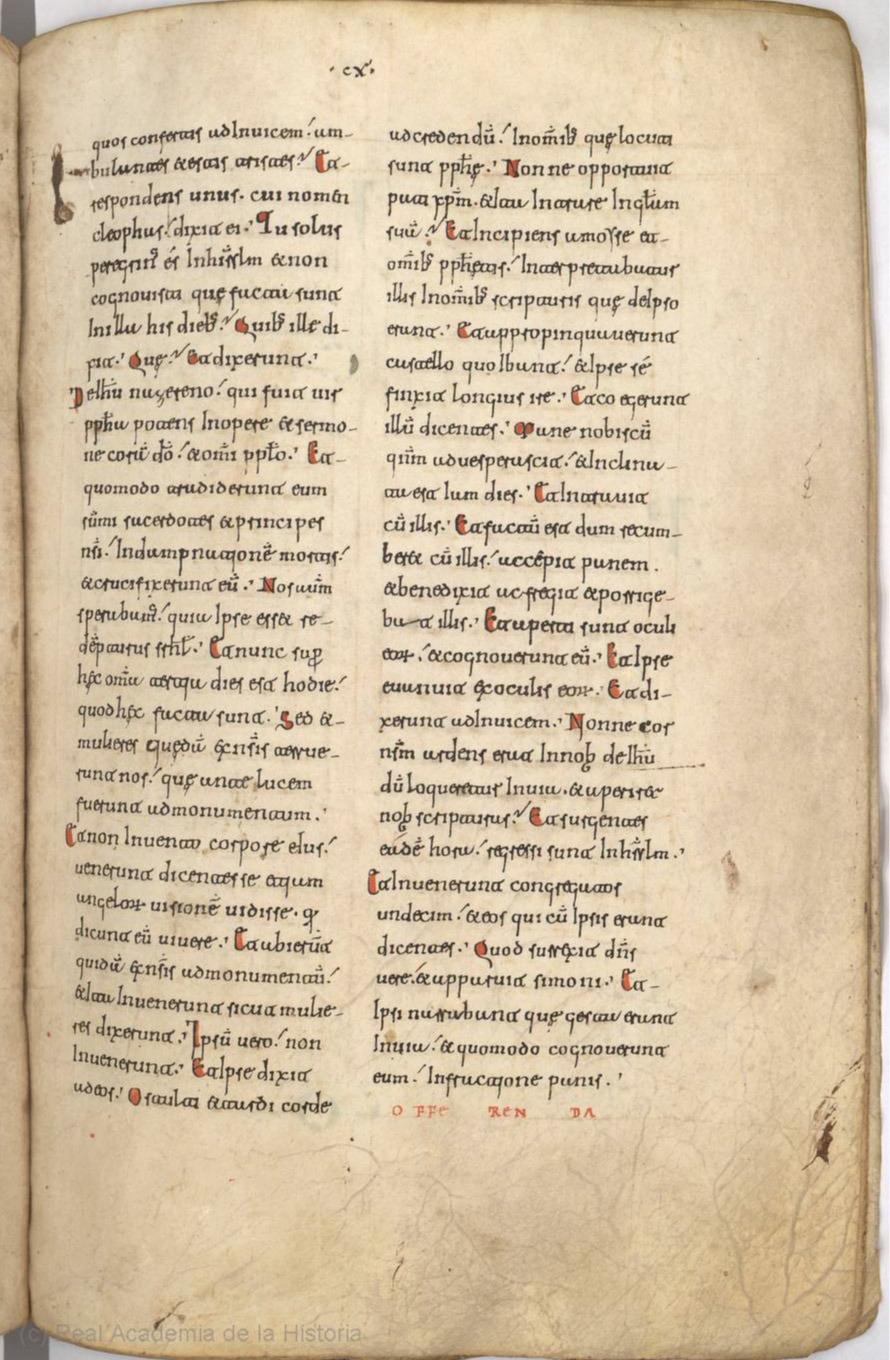 ·cx·
quos confertis ad Inuicem! am-
bulantes & estis tristes? Et-
respondens unus· cui nomen
cleophas! dixit ei· Tu solus
peregrin̄ es Inhir̄slm & non
cognouisti quę facta sunt
In illa his dieb̄? Quib̄ ille di-
xit· Quę? Et dixerunt·
De ihū nazereno! qui fuit uir
pph̄a potens Inopere & sermo-
ne corā dō! & om̄i ppl̄o· Et-
quomodo tradiderunt eum
sūmi sacerdotes & principes
nsī! Indampnationē mortis!
& crucifixerunt eū· Nos aūm
sperabam̄! quia Ipse esset re-
dēpturus sr̄hl· Et nunc suꝑ
hęc om̄ia tertia dies est hodie!
quod hęc facta sunt· Sed &-
mulieres quędā ex nsīs terrue-
runt nos! quę ante lucem
fuerunt ad monumentum·
Et non Inuento corpore eius!
uenerunt dicentes se etiam
angeloꝝ uisionē uidisse· qi
dicunt eū uiuere· Et abierūt
quidā ex nsīs ad monumentū!
& ita Inuenerunt sicut mulie-
res dixerunt· Ipsū uero! non
Inuenerunt· Et Ipse dixit
ad eos· O stulti & tardi corde
ad credendū! Inom̄ib̄ quę locuti
sunt pph̄ę· Nonne oportuit
pati xpm̄· & ita Intrare Ingl̄am
suā? Et Incipiens a mosse et-
om̄ib̄ pph̄etis! Interpretabatur
illis Inom̄ib̄ scripturis quę deIpso
erunt· Et appropinquauerunt
castello quo Ibant! & Ipse sē
finxit longius ire· Et coegerunt
illū dicentes· Mane nobiscū
qnm̄ aduesperascit! & Inclina-
ta est Iam dies· Et Intrauit
cū illis· Et factū est dum recum-
beret cū illis! accēpit panem·
& benedixit ac fregit & porrige-
bat illis· Et aperti sunt oculi
eoꝝ! & cognouerunt eū· Et Ipse
euanuit ex oculis eoꝝ· Et di-
xerunt ad Inuicem· Nonne cor
nsm̄ ardens erat Innob̄ deIhū
dū loqueretur Inuia· & aperiret
nob̄ scripturas? Et surgentes
eādē hora! regressi sunt Inhr̄slm·
Et Inuenerunt congregatos
undecim! & eos qui cū Ipsis erant
dicentes· Quod surrexit dn̄s
uere! & apparuit simoni· Et-
Ipsi narrabant quę gesta erant
Inuia! & quomodo cognouerunt
eum! Infractione panis·
OFFERENDA
(c) Real Academia de la Historia